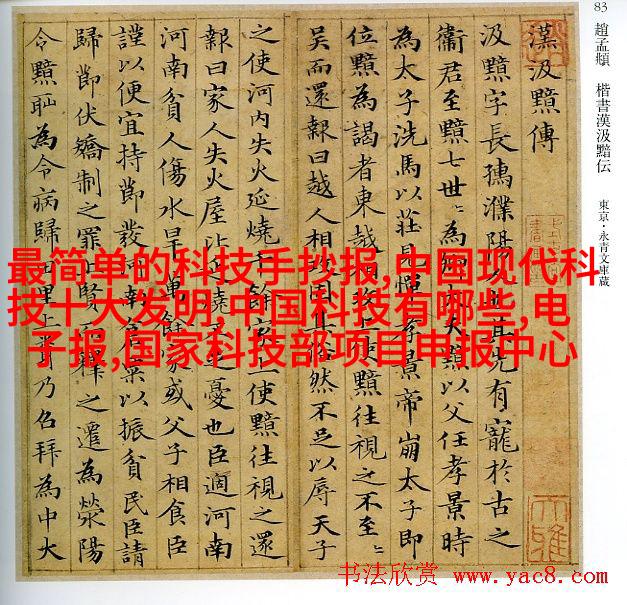 83 趙孟頫 楷書漢汲黯伝 東京·永青文庫蔵
漢汲黯傳
汲黯字長孺濮陽人也其先有寵於古之
衞君至黯七世〻為卿大夫黯以父任孝景時
為太子洗馬以莊見憚孝景帝崩太子即
位黯為謁者東越相攻上使黯往視之不至〻
吳而還報曰越人相攻固其俗然不足以辱天子
之使河內失火延燒千餘家上使黯往視之還
報曰家人失火屋比延燒不足憂也臣適河南
河南貧人傷水旱萬餘家或父子相食臣
謹以便宜持節發河南倉粟以振貧民臣請
歸節伏矯制之罪上賢而釋之遷為滎陽
令黯恥為令病歸田里上聞乃召拜為中大
最简单的科技手抄报,中国现代科
技十大发明,中国科技有哪些,电
子报,国家科技部项目申报中心
书法欣赏 www.yac8.com